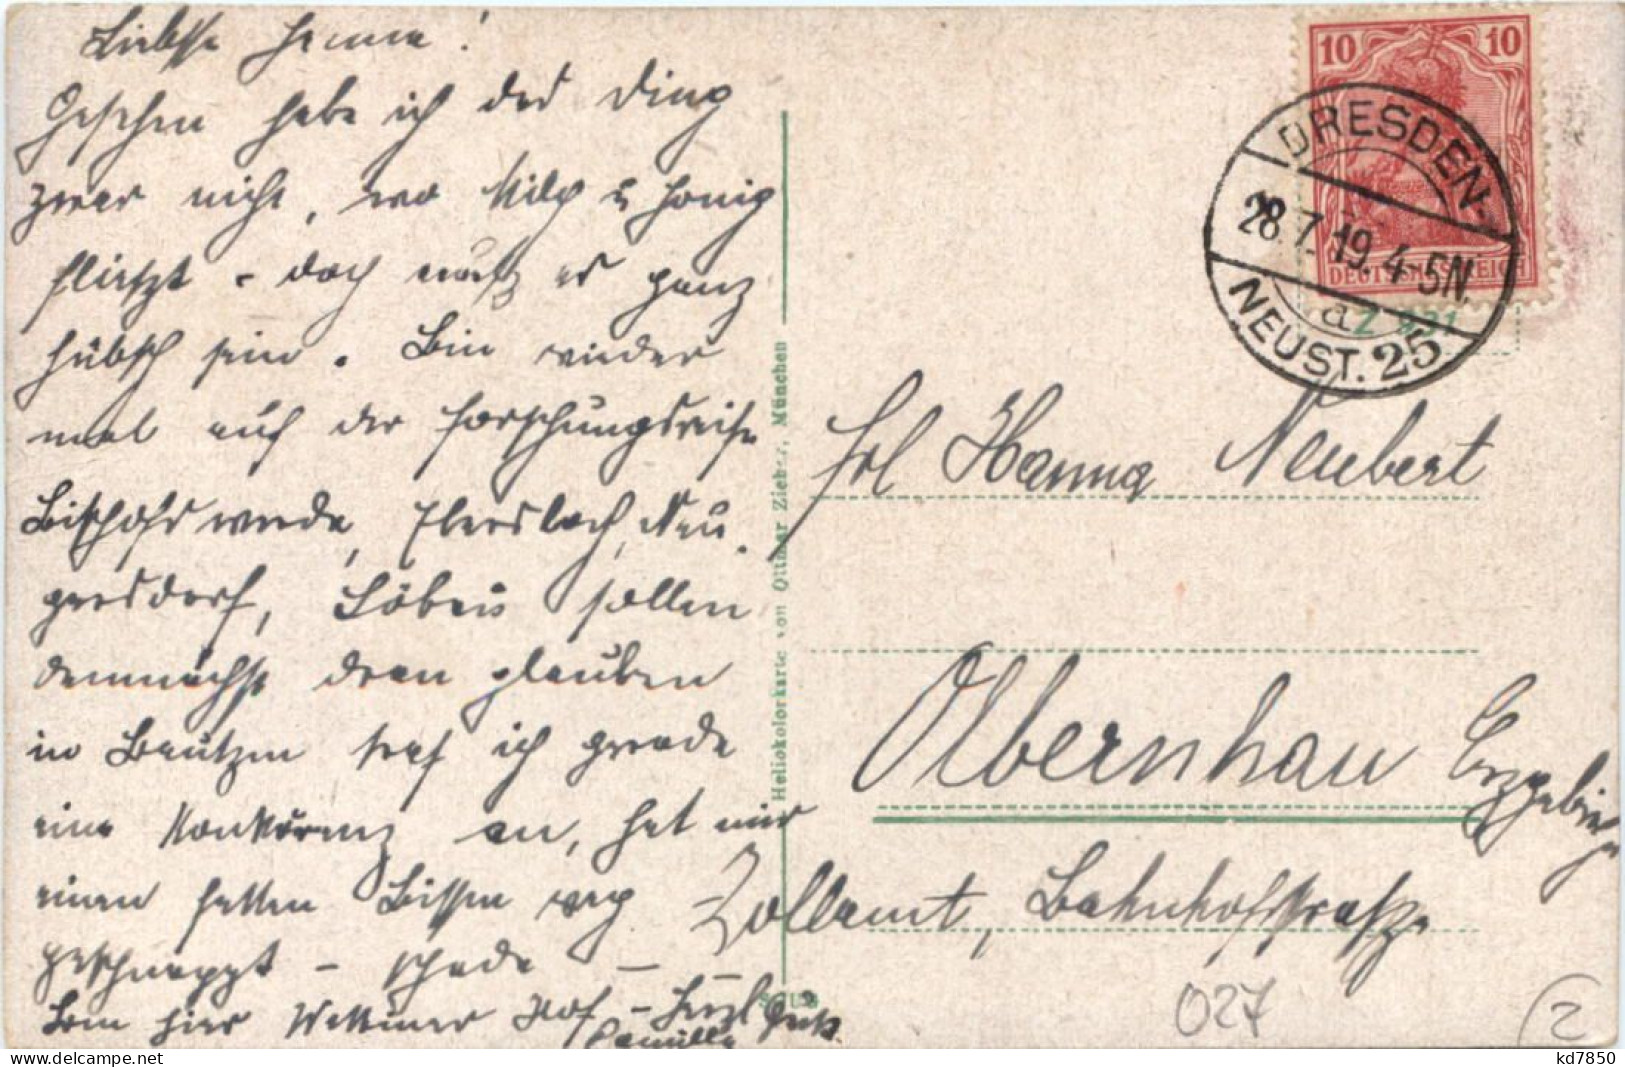 Liebste Hanna!
Gesehen habe ich das Ding
zwar nicht, wo Milch u Honig
fliesst - doch muss es ganz
hübsch sein. Bin wieder
mal auf der Forschungsreise
Bischofswerda, Ebersbach, Neu-
gersdorf, Löbau sollen
demnächst dran glauben
in Bautzen traf ich gerade
eine Konkurrenz an, hat mir
einen fetten Bissen weg
geschnappt - schade -
hier Wettiner Hof - Herzl Gruß
Camilla
10 10
DEUTSCHES REICH
DRESDEN-
28.7.19.4-5N.
a
NEUST. 25
Frl Hanna Neubert
Olbernhau Erzgebirge
Zollamt, Bahnhofstrasse
Heliokolorkarte von Ottmar Zieher, München
027
2
kd7850